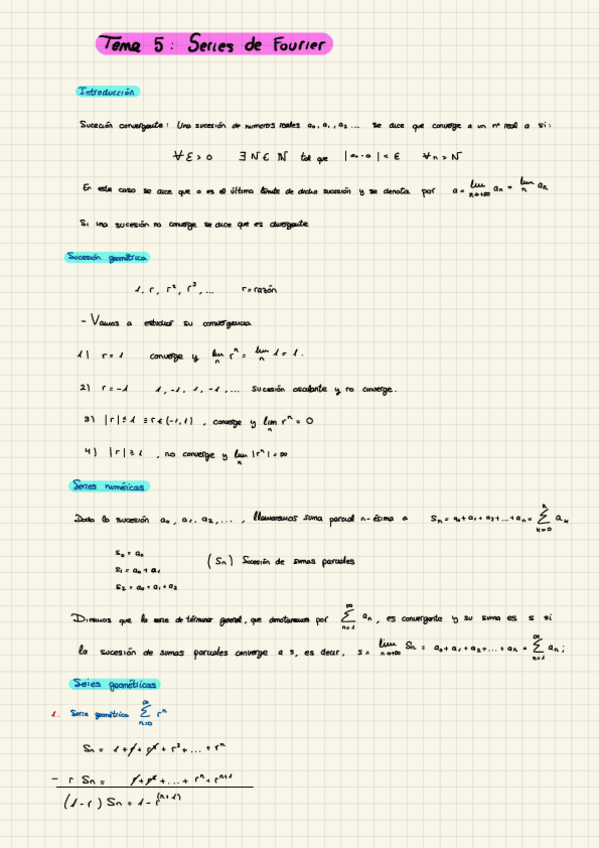 Tema 5: Series de Fourier
Introducción
Suceción convergente: Una sucesión de numeros reales a₀, a₁, a₂ ... se dice que converge a un nº real a si:
∀ ε > 0 ∃ N ∈ ℕ tal que |aₙ-a| < ε ∀ n > N
En este caso se dice que a es el último límite de dicha sucesión y se denota por a = lim n→+∞ aₙ = lim n aₙ
Si una sucesión no converge se dice que es divergente
Sucesión geométrica
1, r, r², r³, ... r = razón
- Vamos a estudiar su convergencia
1) r = 1 converge y lim n rⁿ = lim n 1 = 1.
2) r = -1 1, -1, 1, -1, ... sucesión oscilante y no converge.
3) |r| ≤ 1 ≡ r ∈ (-1, 1), converge y lim n rⁿ = 0
4) |r| ≥ 1, no converge y lim n |rⁿ| = ∞
Series numéricas
Dada la sucesión a₀, a₁, a₂, ..., llamaremos suma parcial n-ésima a Sₙ = a₀ + a₁ + a₂ + ... + aₙ = Σ k=0 n aₖ
S₀ = a₀
S₁ = a₀ + a₁ (Sₙ) Sucesión de sumas parciales
S₂ = a₀ + a₁ + a₂
Diremos que la serie de término general, que denotaremos por Σ n=1 ∞ aₙ, es convergente y su suma es s si
la sucesión de sumas parciales converge a s, es decir, s = lim n→+∞ Sₙ = a₀ + a₁ + a₂ + ... + aₙ = Σ n=1 ∞ aₙ;
Seies geométricas
1. Serie geométrica Σ n=0 ∞ rⁿ
Sₙ = 1 + r + r² + r³ + ... + rⁿ
- r Sₙ = r + r² + ... + rⁿ + rⁿ⁺¹
(1-r) Sₙ = 1 - r⁽ⁿ⁺¹⁾